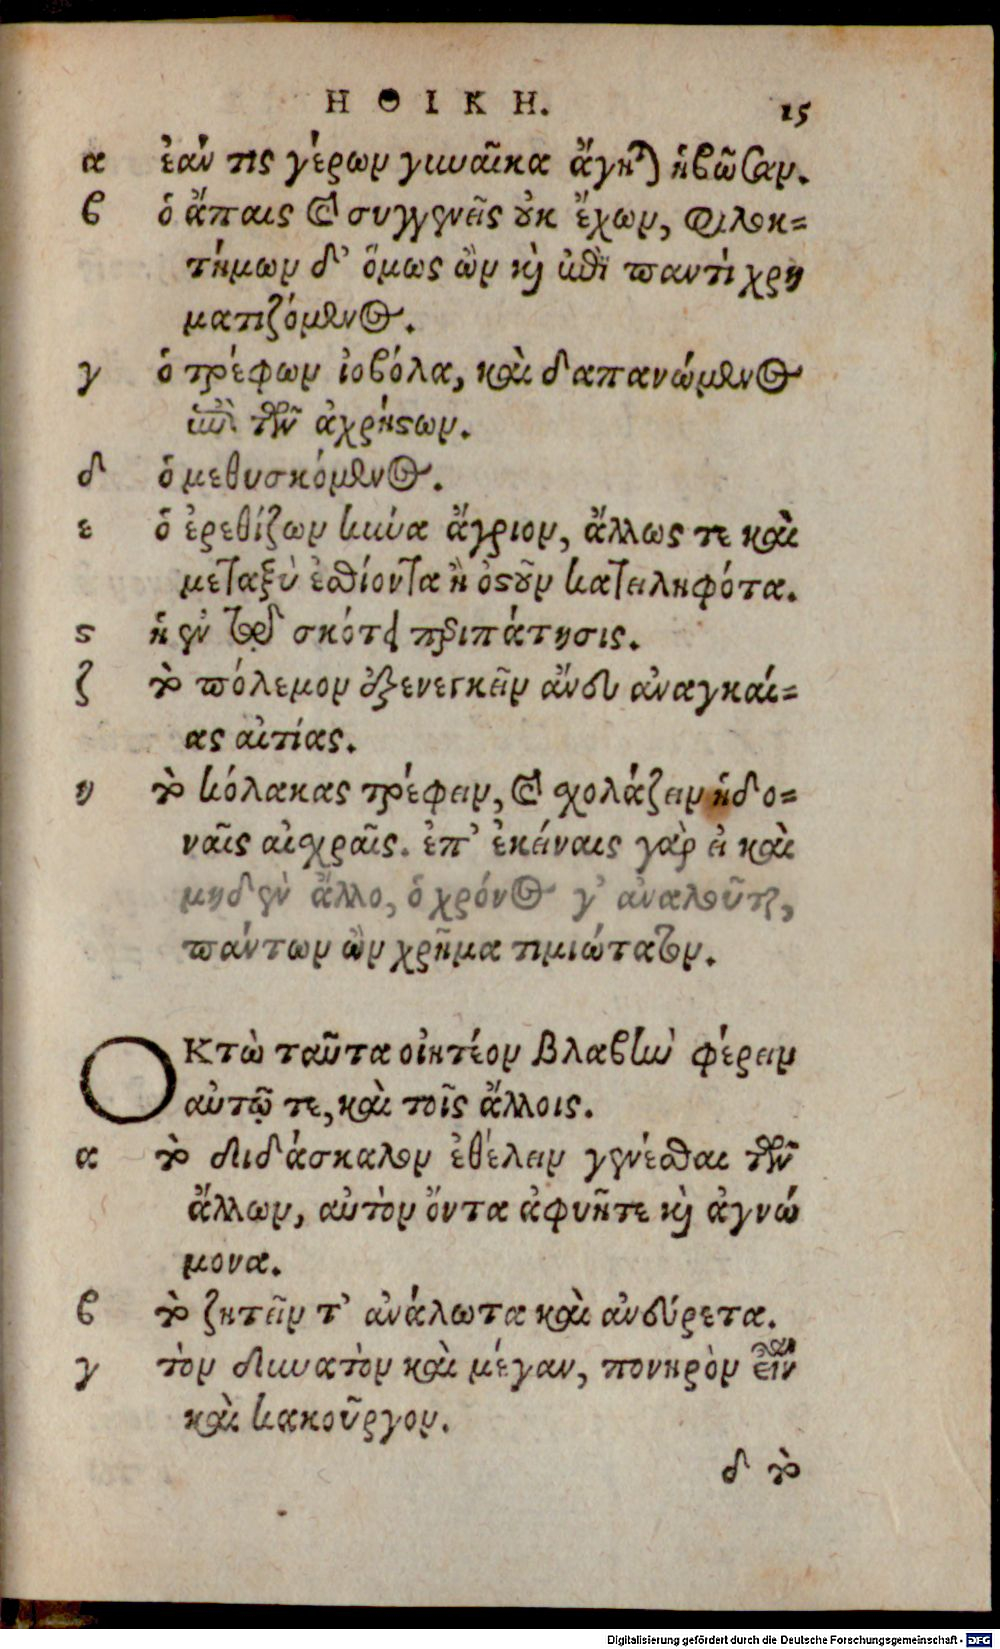 ΗΘΙΚΗ. 15
α ἐάν τις γέρων γυναῖκα ἄγηται ἡβῶσαν.
β ὁ ἄπαις καὶ συγγενεῖς οὐκ ἔχων, φιλοκ-
τήμων δ' ὅμως ὢν καὶ ἐπὶ παντὶ χρη
ματιζόμενος.
γ ὁ τρέφων ἰοβόλα, καὶ δαπανώμενος
ὑπὲρ τῶν ἀχρήστων.
δ ὁ μεθυσκόμενος.
ε ὁ ἐρεθίζων κύνα ἄγριον, ἄλλως τε καὶ
μεταξὺ ἐσθίοντα ἢ ὀστοῦν κατειληφότα.
ϛ ἡ ἐν τῷ σκότει περιπάτησις.
ζ τὸ πόλεμον ἐξενεγκεῖν ἄνευ ἀναγκαί-
ας αἰτίας.
η τὸ κόλακας τρέφειν, καὶ σχολάζειν ἡδο-
ναῖς αἰσχραῖς. ἐπ' ἐκείναις γὰρ εἰ καὶ
μηδὲν ἄλλο, ὁ χρόνος γ' ἀναλοῦται,
πάντων ὢν χρῆμα τιμιώτατον.
ΟΚτὼ ταῦτα οἰητέον βλάβην φέρειν
αὐτῷ τε, καὶ τοῖς ἄλλοις.
α τὸ διδάσκαλον ἐθέλειν γενέσθαι τῶν
ἄλλων, αὐτὸν ὄντα ἀφυῆ τε καὶ ἀγνώ
μονα.
β τὸ ζητεῖν τ' ἀνάλωτα καὶ ἀνεύρετα.
γ τὸν δυνατὸν καὶ μέγαν, πονηρὸν εἶναι
καὶ κακοῦργον.
δ τὸ
Digitalisierung gefördert durch die Deutsche Forschungsgemeinschaft - DFG